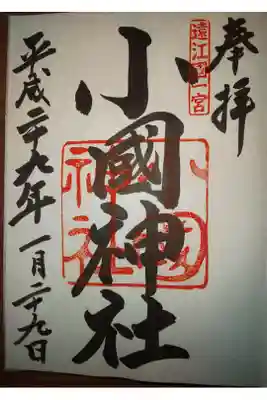 奉拝
遠江国一宮
小國神社
小國神社
平成二十九年一月二十九日